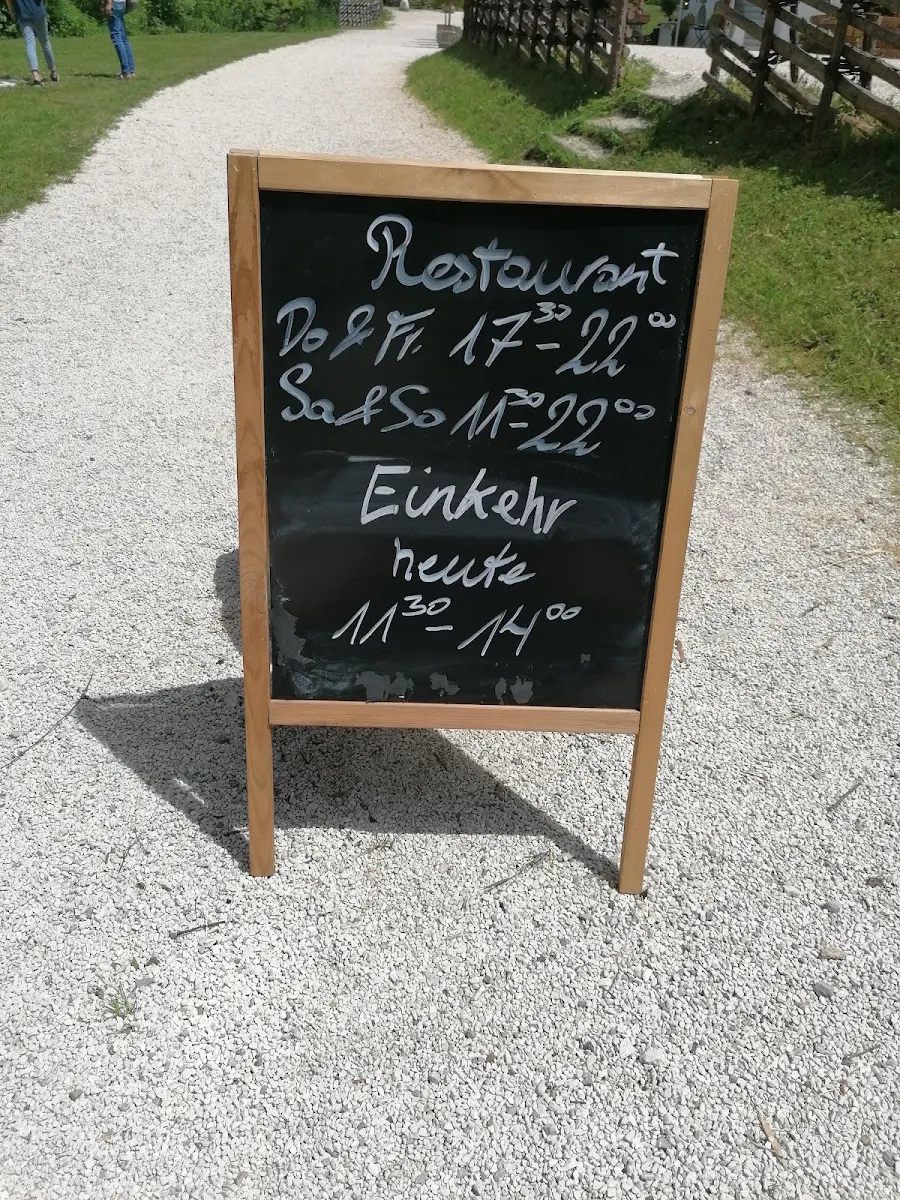 Restaurant
Do & Fr. 17³⁰ - 22⁰⁰
Sa & So 11³⁰ - 22⁰⁰
Einkehr
heute
11³⁰ - 14⁰⁰